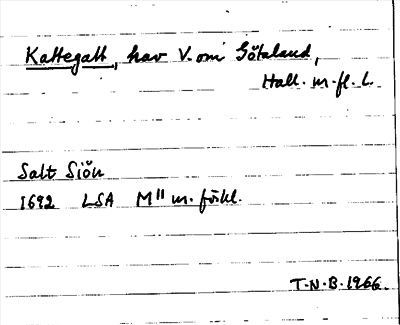 Kattegatt, hav V. om Götaland,
Hall. m. fl. l.
Salt Siön
1692 LSA M II m. förkl.
T.N.B. 1966.